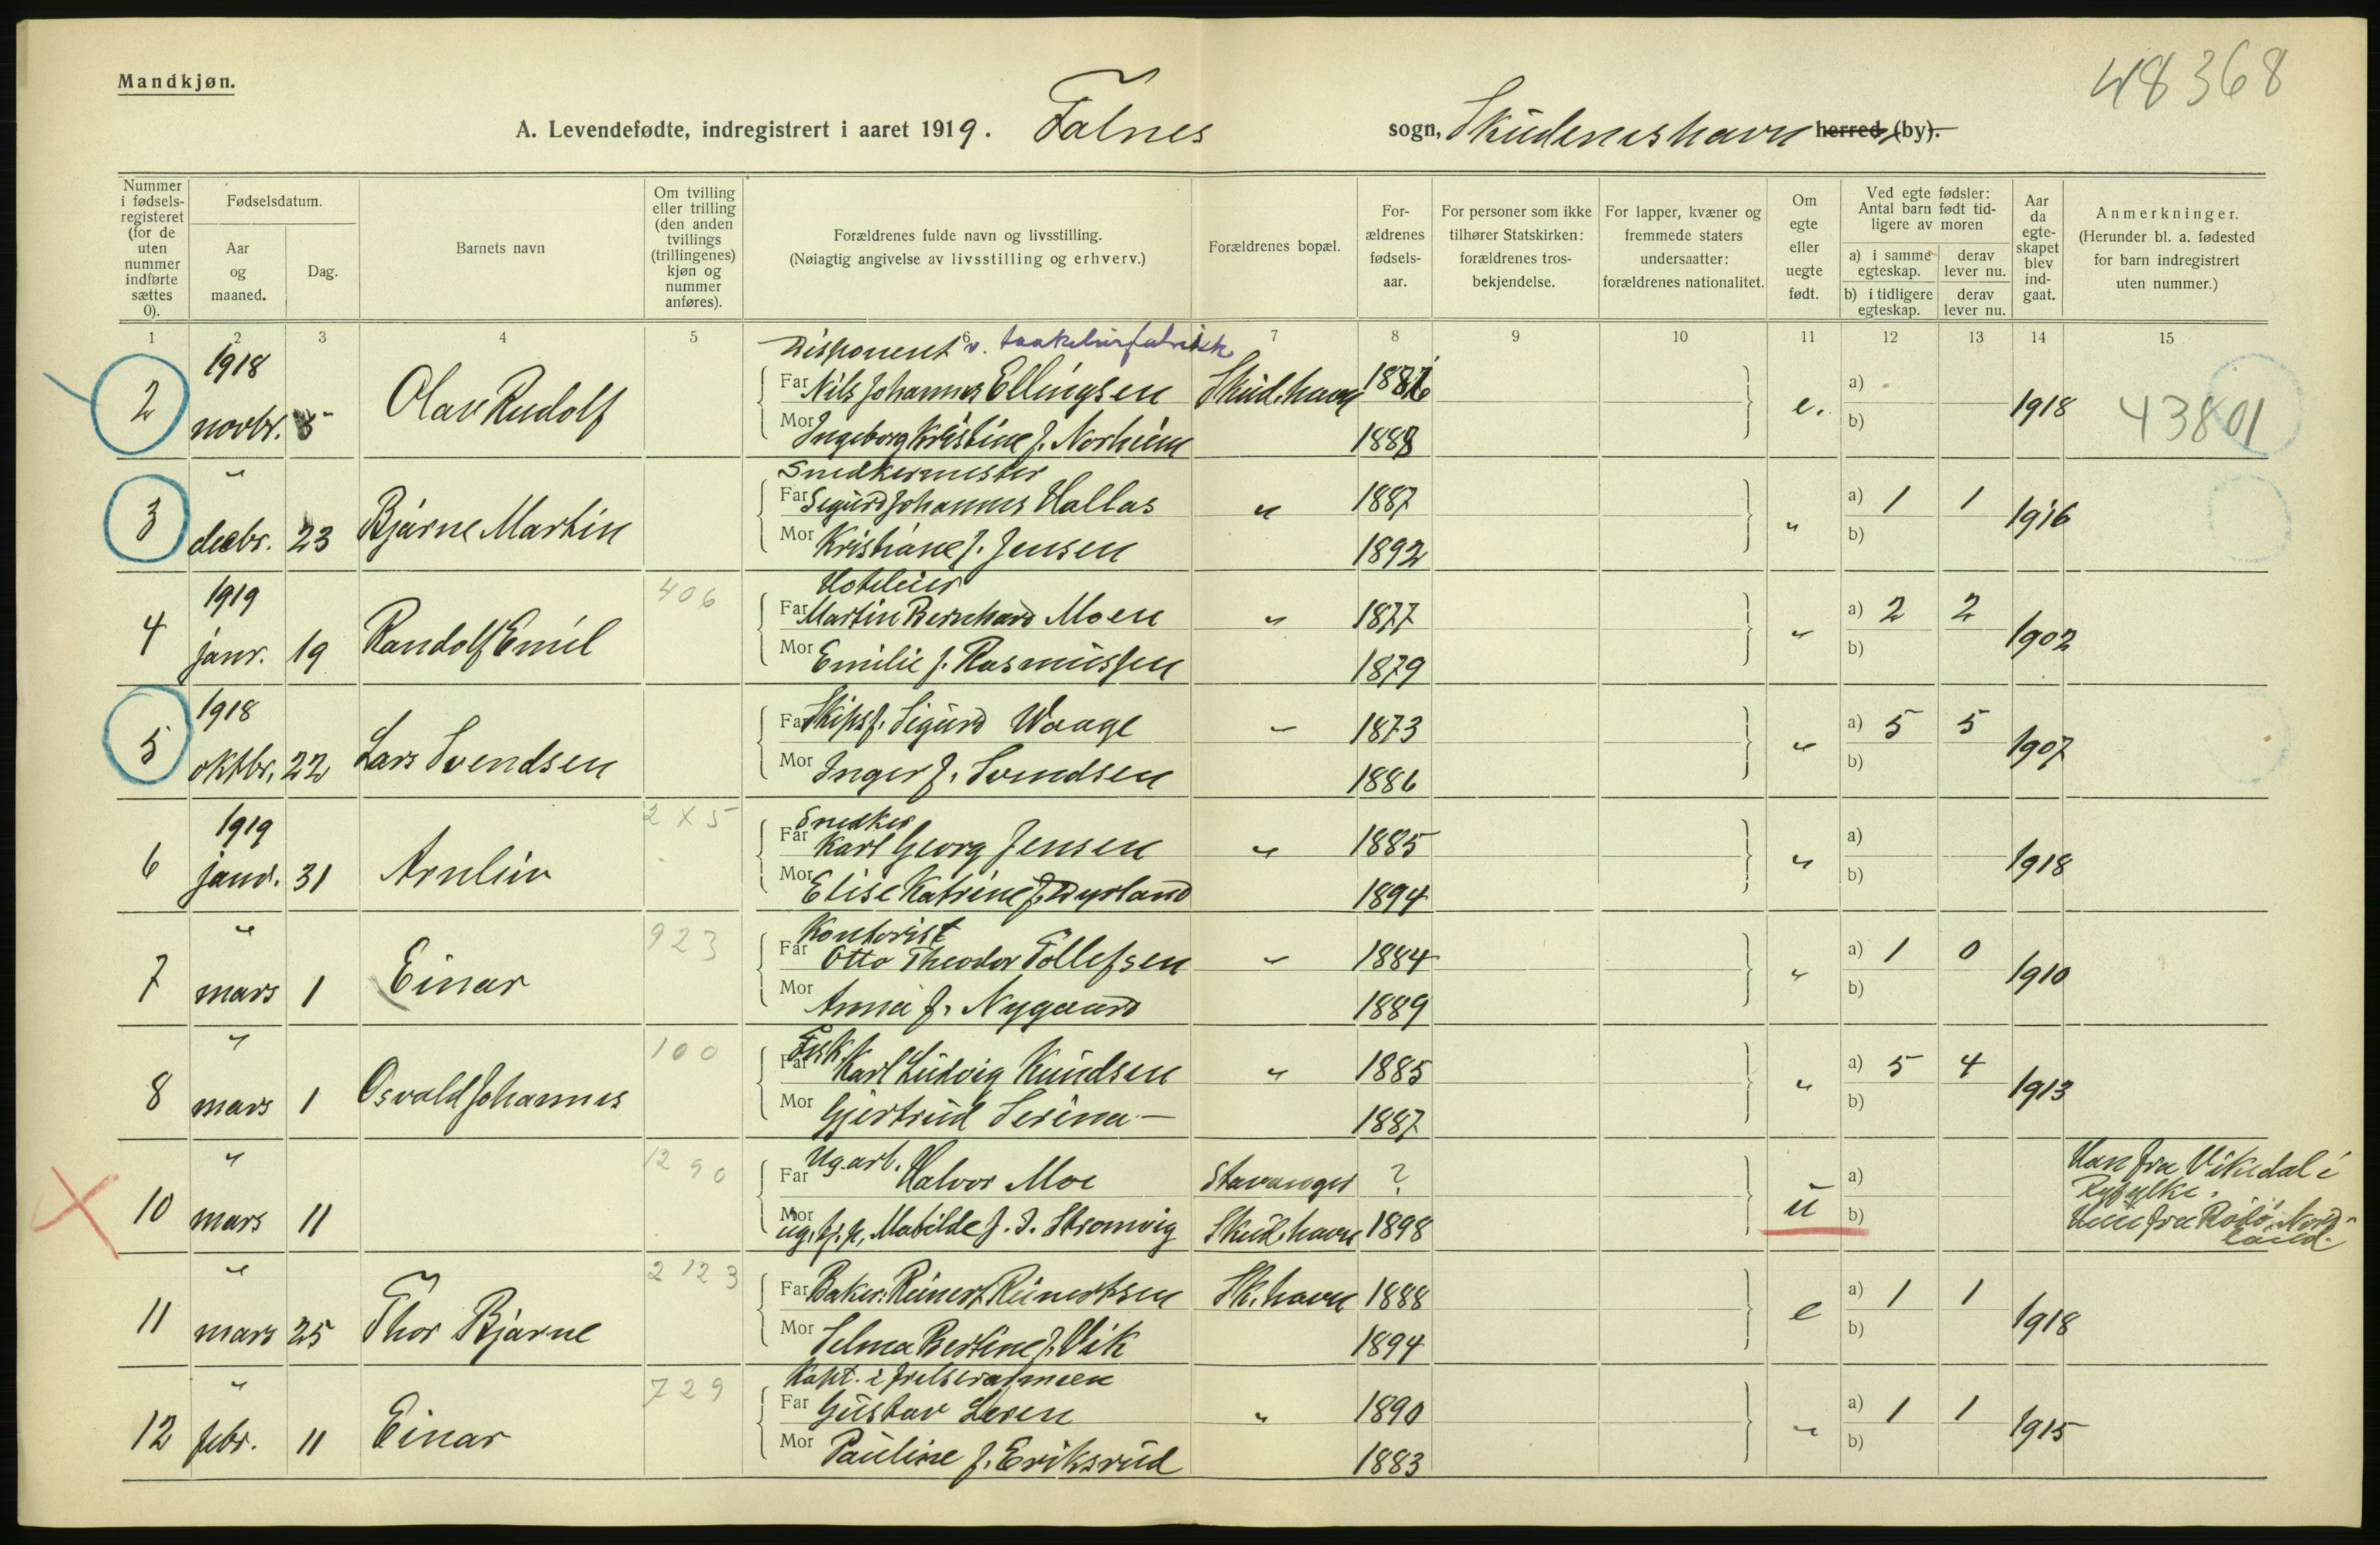 48368
Mandkjøn.
A. Levendefødte, indregistrert i aaret 1919. Falnes sogn, Skudeneshavn herred (by).
Nummer i fødsels-registeret (for de uten nummer indførte sættes 0).
Fødselsdatum.
Aar og maaned.
Dag.
Barnets navn
Om tvilling eller trilling (den anden tvillings (trillingenes) kjøn og nummer anføres).
Forældrenes fulde navn og livsstilling.
(Nøiagtig angivelse av livsstilling og erhverv.)
Forældrenes bopæl.
For-ældrenes fødsels-aar.
For personer som ikke tilhører Statskirken: forældrenes tros-bekjendelse.
For lapper, kvæner og fremmede staters undersaatter: forældrenes nationalitet.
Om egte eller uegte født.
Ved egte fødsler: Antal barn født tid-ligere av moren
a) i samme egteskap.
derav lever nu.
b) i tidligere egteskap.
derav lever nu.
Aar da egte-skapet blev ind-gaat.
Anmerkninger.
(Herunder bl. a. fødested for barn indregistrert uten nummer.)
1 2 3 4 5 6 7 8 9 10 11 12 13 14 15
1918 Disponent v.
2 novbr. 5 Olav Rudolf Far Nils Johannes Ellingsen Skud.havn 1886 e. a) 1918 43801
Mor Ingeborg Kristine f. Norheim 1888 b)
" Snedkermester
3 decbr. 23 Bjarne Martin Far Sigurd Johannes Hallas " 1887 " a) 1 1 1916
Mor Kristiane f. Jensen 1892 b)
1919 406 Hoteleier
4 janr. 19 Randolf Emil Far Martin Bernhard Moen " 1877 " a) 2 2 1902
Mor Emilie f. Rasmussen 1879 b)
1918
5 oktbr. 22 Lars Svendsen Far Skipsf. Sigurd Waage " 1873 " a) 5 5 1907
Mor Inger f. Svendsen 1886 b)
1919 2 x 5 Snedker
6 janr. 31 Arnliv Far Karl Georg Jensen " 1885 " a) 1918
Mor Elise Katrine f. Dyrland 1894 b)
" 923 Kontorist
7 mars 1 Einar Far Otto Theodor Tollefsen " 1884 " a) 1 0 1910
Mor Anna f. Nygaard 1889 b)
" 100 Fisk.
8 mars 1 Osvald Johannes Far Karl Ludvig Knudsen " 1885 " a) 5 4 1913
Mor Gjertrud Serina — 1887 b)
" 1290 Ug. arb.
10 mars 11 Far Halvor Moe Stavanger ? u a) Han fra Vikedal i Ryfylke.
Mor ug. tj.p. Matilde f. J. Stromvig Skud.havn 1898 b) Hun fra Rödö, Nordland.
" 2123
11 mars 25 Thor Bjarne Far Baker: Reinert Reinertsen Sk.havn 1888 e a) 1 1 1918
Mor Selma Bertine f. Vik 1894 b)
" 729 Kapt. i frelsesarmeen
12 febr. 11 Einar Far Gustav Leren " 1890 " a) 1 1 1915
Mor Pauline f. Eriksrud 1883 b)